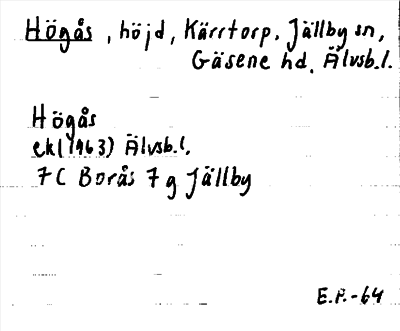 Högås, höjd, Kärrtorp, Jällby sn,
Gäsene hd, Älvsb.l.
Högås
ek(1963) Älvsb.l.
7C Borås 7g Jällby
E.P.-64